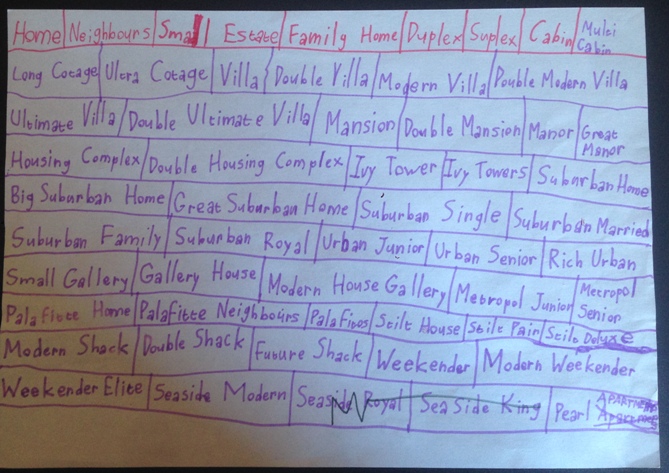 Home Neighbours Small Estate Family Home Duplex Suplex Cabin Multi Cabin
Long Cotage Ultra Cotage Villa Double Villa Modern Villa Double Modern Villa
Ultimate Villa Double Ultimate Villa Mansion Double Mansion Manor Great Manor
Housing Complex Double Housing Complex Ivy Tower Ivy Towers Suburban Home
Big Suburban Home Great Suburban Home Suburban Single Suburban Married
Suburban Family Suburban Royal Urban Junior Urban Senior Rich Urban
Small Gallery Gallery House Modern House Gallery Metropol Junior Metropol Senior
Palafitte Home Palafitte Neighbours Palafitos Stilt House Stilt Pair Stilt Deluxe
Modern Shack Double Shack Future Shack Weekender Modern Weekender
Weekender Elite Seaside Modern Seaside Royal Seaside King Pearl